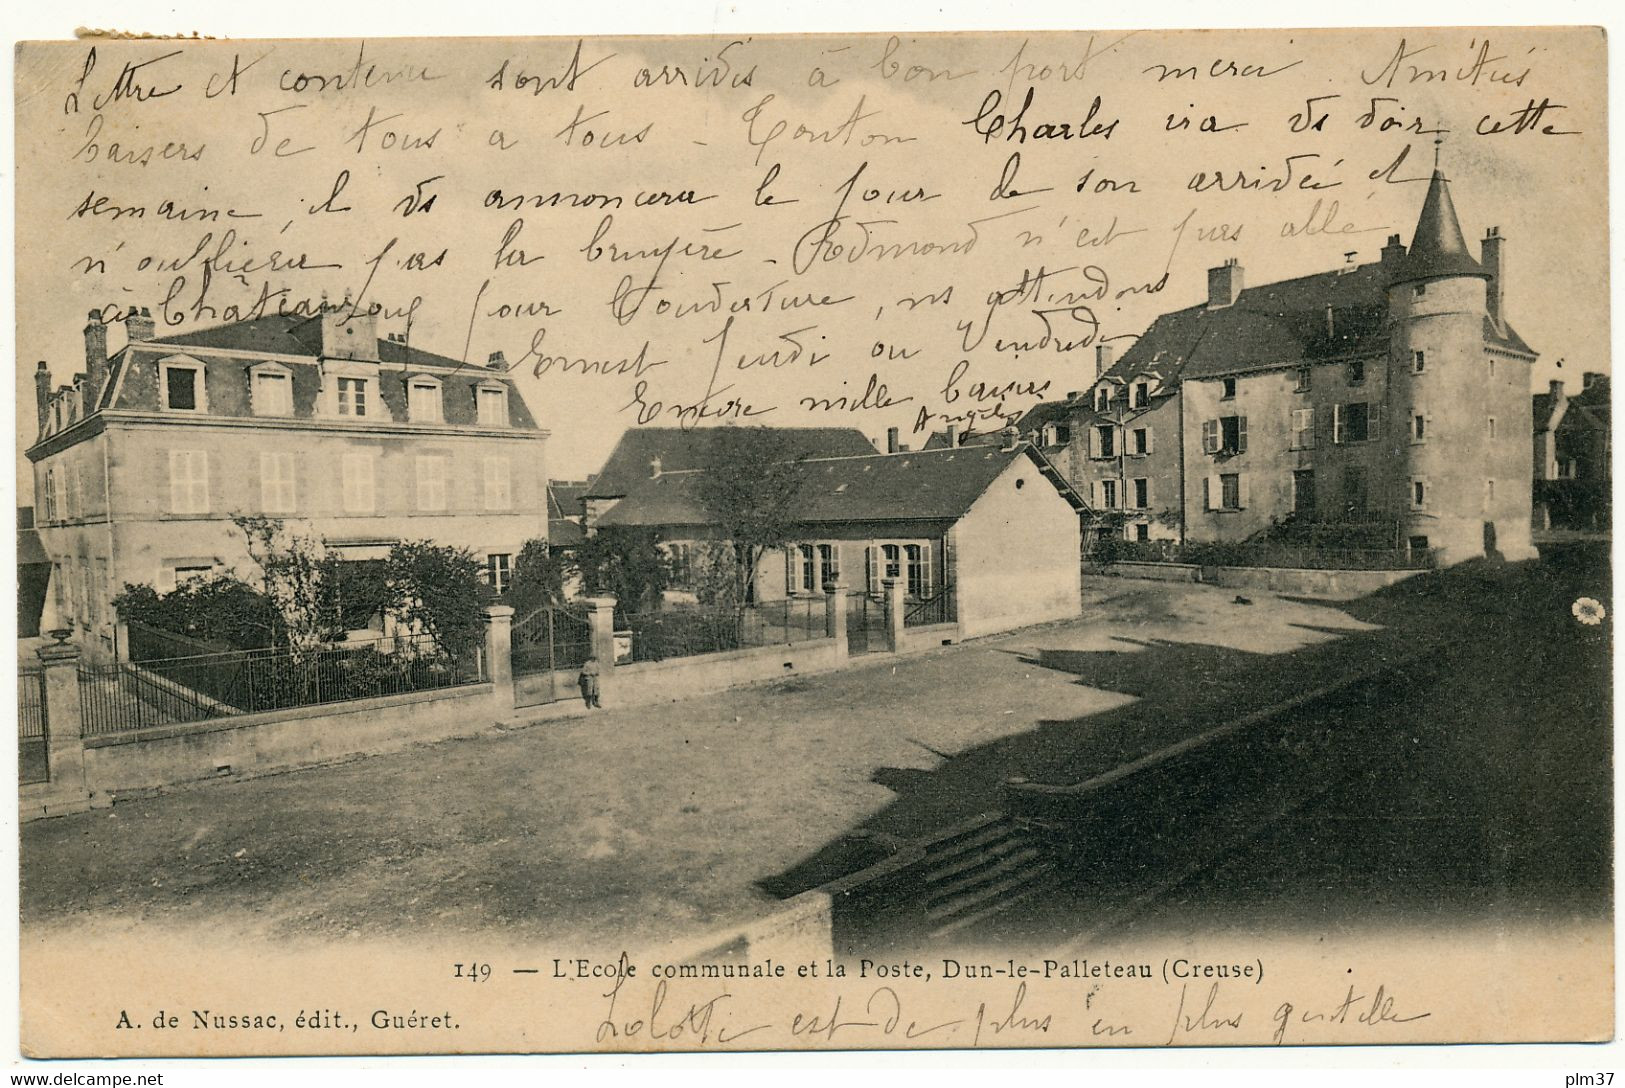 Lettre et contenu sont arrivés à bon port merci. Amitiés
baisers de tous a tous - Tonton Charles ira vs voir cette
semaine, il vs annoncera le jour de son arrivée et
n'oubliera pas la bruyère - Edmond n'est pas allé
à Châteauroux pour Couverture, ns attendons
Ernest Jeudi ou Vendredi
Encore mille baisers
Angèle
149 — L'Ecole communale et la Poste, Dun-le-Palleteau (Creuse)
A. de Nussac, édit., Guéret.
Lolotte est de plus en plus gentille
delcampe.net
plm37